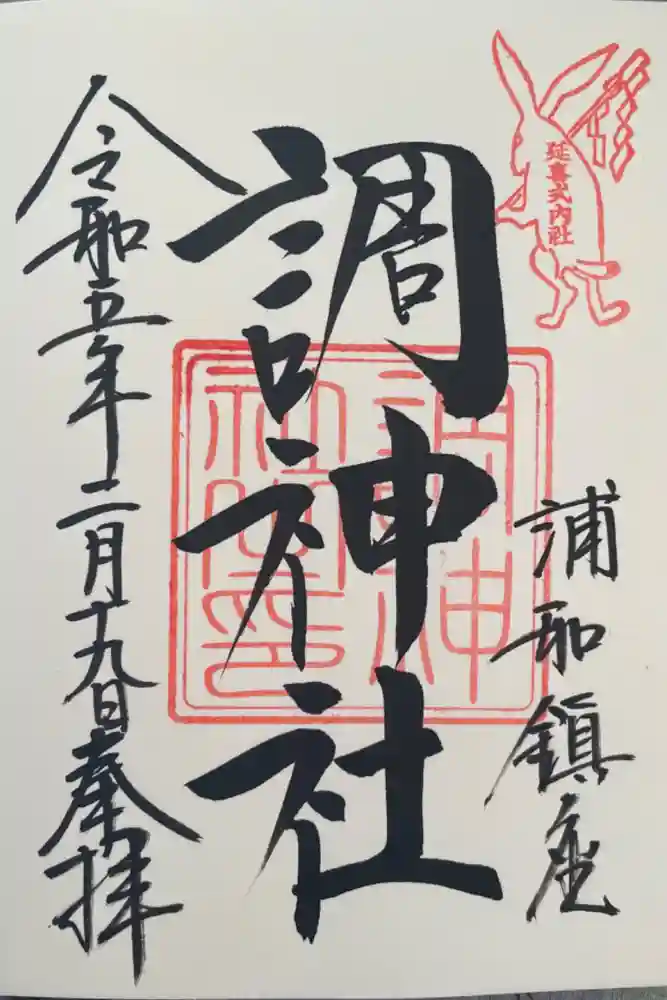 延喜式内社
浦和鎮座
調神社
調神
社之印
令和五年二月十九日奉拝